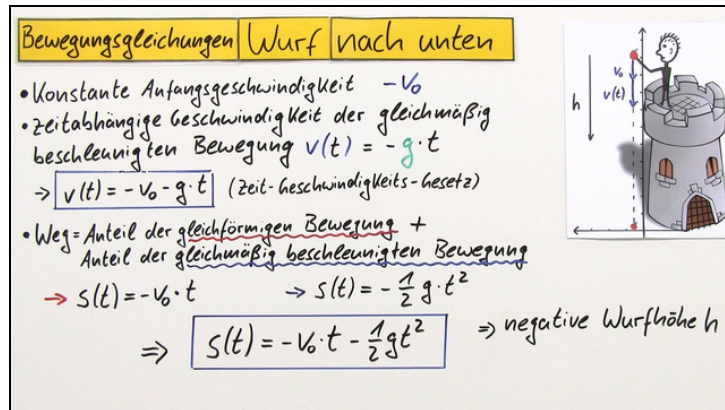 Bewegungsgleichungen Wurf nach unten
• Konstante Anfangsgeschwindigkeit -v₀
• Zeitabhängige Geschwindigkeit der gleichmäßig
beschleunigten Bewegung v(t) = -g·t
→ v(t) = -v₀ - g·t (Zeit-Geschwindigkeits-Gesetz)
• Weg = Anteil der gleichförmigen Bewegung +
Anteil der gleichmäßig beschleunigten Bewegung
→ s(t) = -v₀·t → s(t) = -½ g·t²
⇒ s(t) = -v₀·t - ½gt² ⇒ negative Wurfhöhe h
v₀
v(t)
h